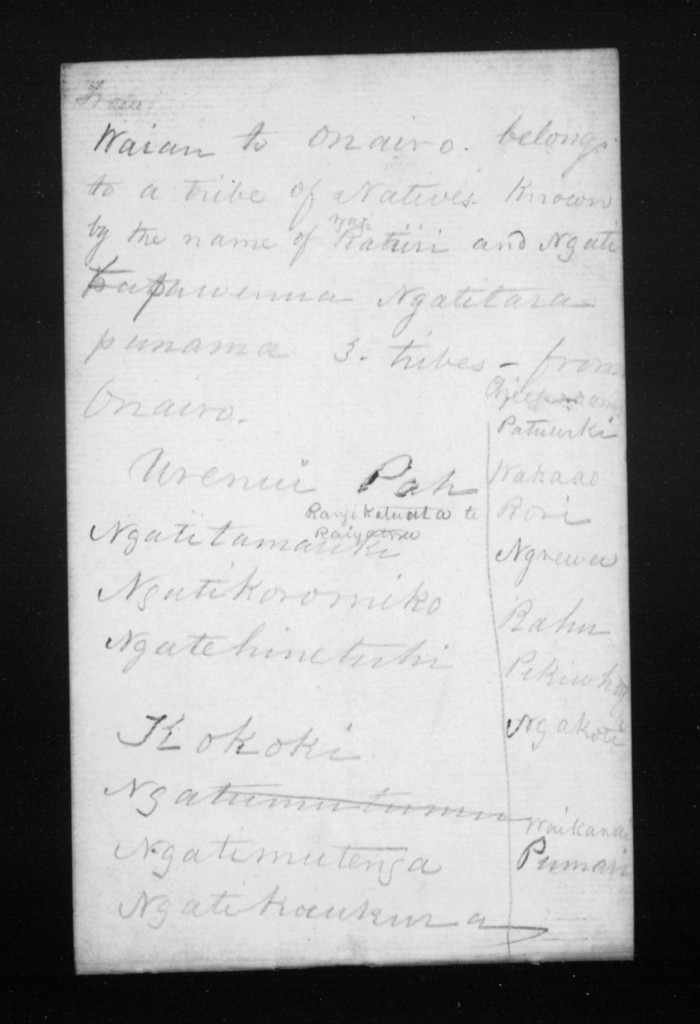 From
Waiau to Onairo. belongs
to a tribe of Natives known
by the name of Ngi Ratiiri and Ngati
tapawenua Ngatitara
punama 3. tribes - from
Onairo.
Urenui Pah
Rangi Katuata te
Ngatitamariki
Ngatikoromiko
Ngatehinetuhi
Kokoki
Ngatumutumu
Ngatimutenga
Ngatikaukura
Patuwiki
Wakaao
Rori
Ngrewa
Rahu
Ngakoti
Waikanai
Pumari